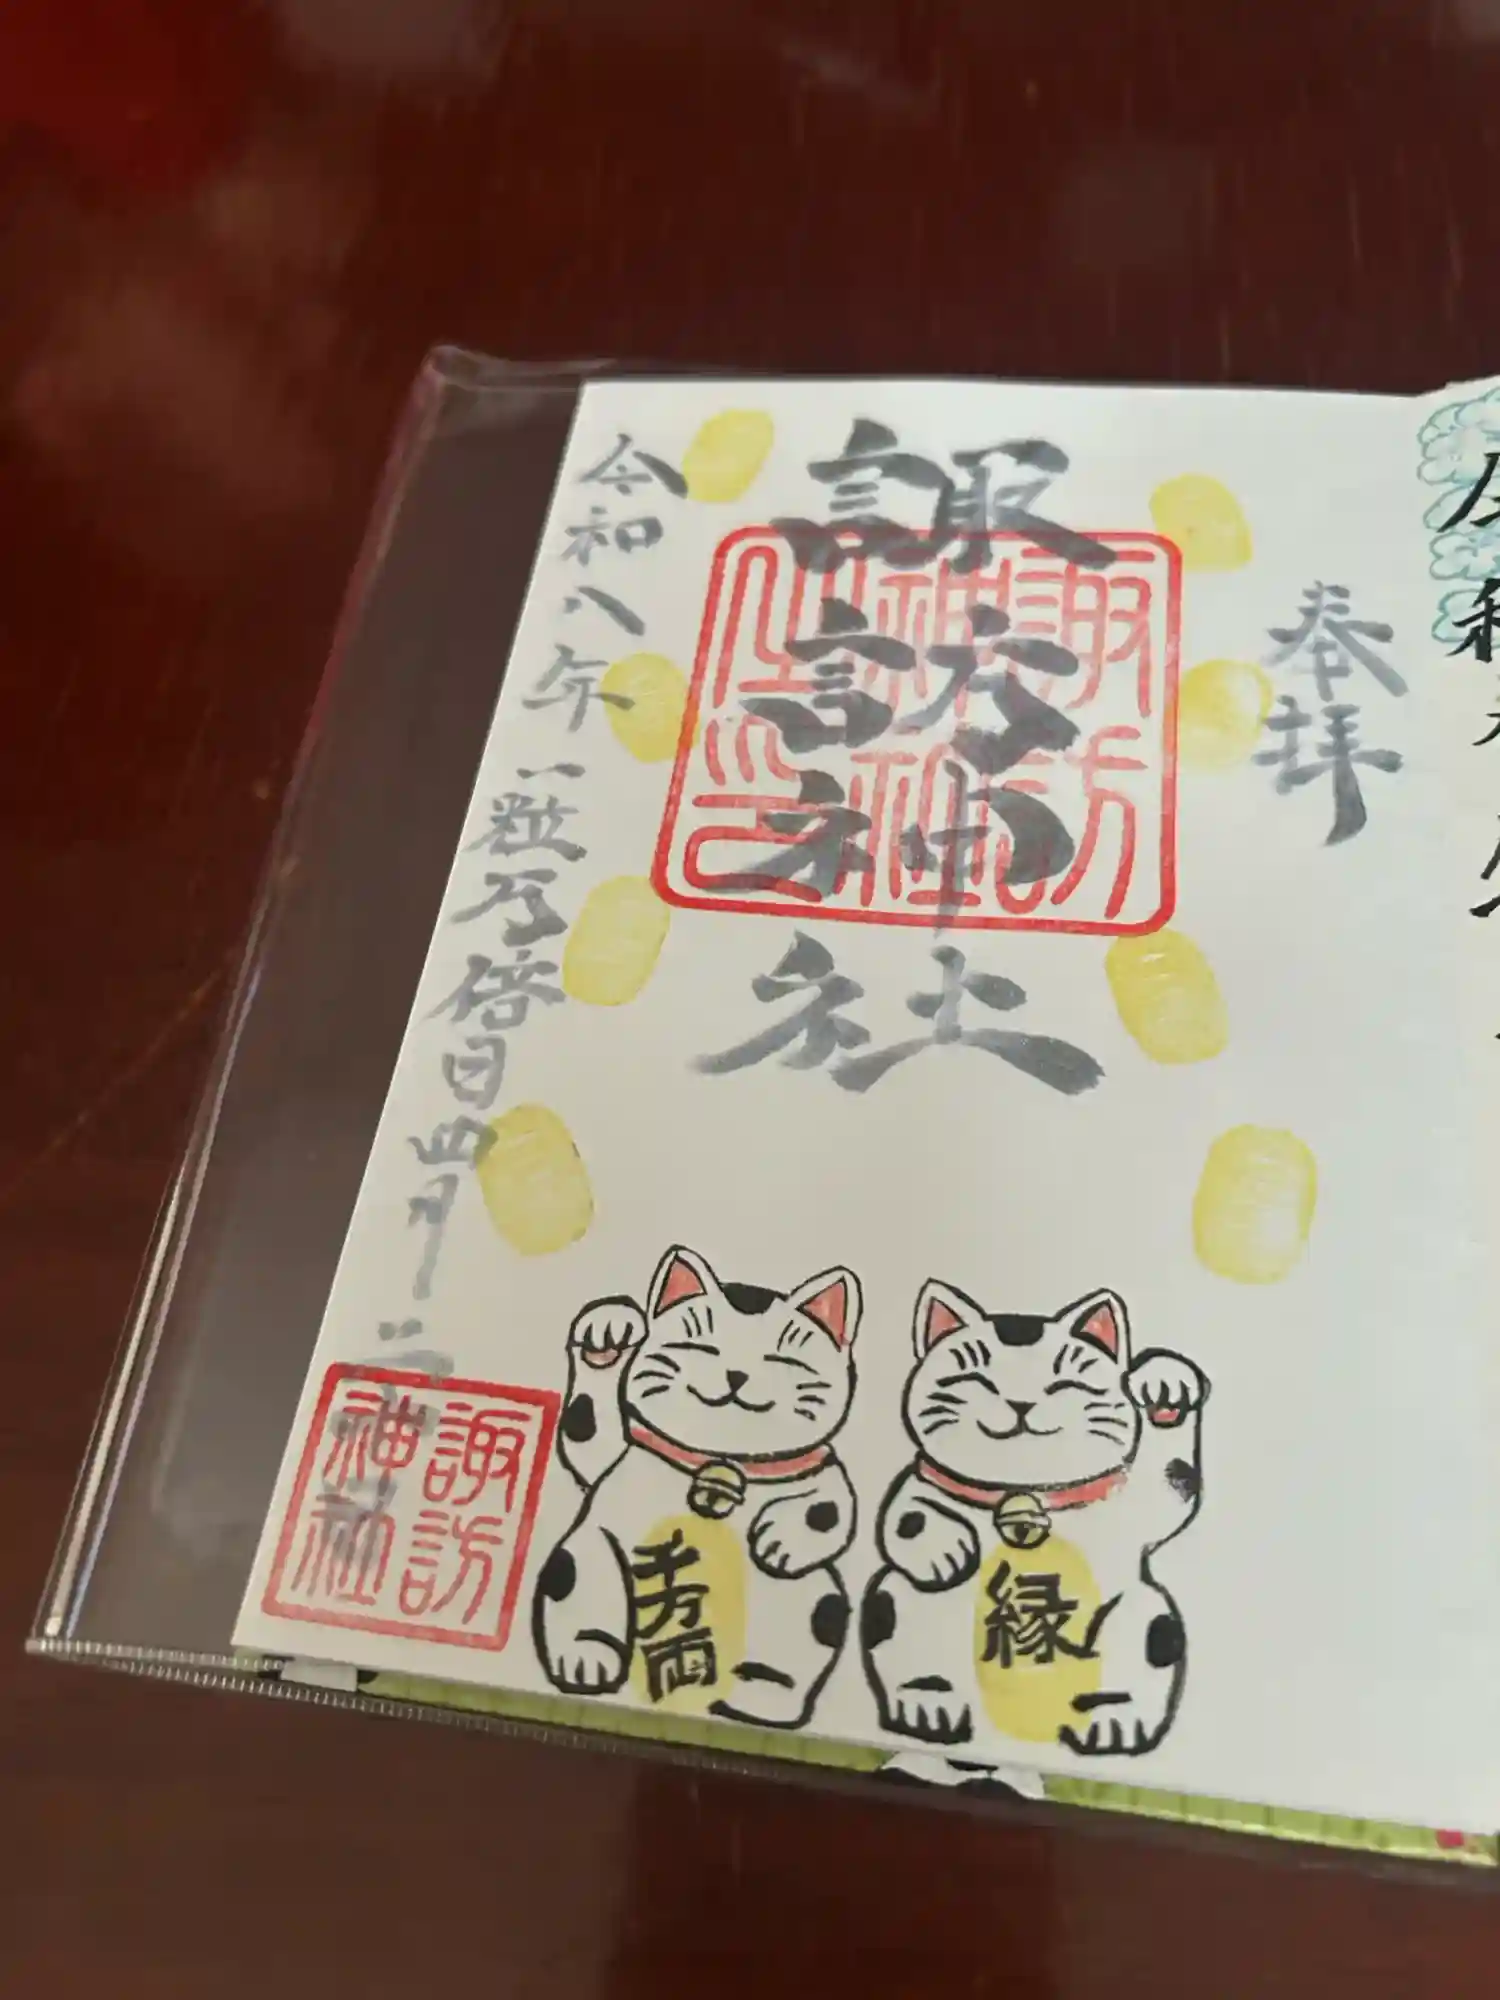 奉拝
諏訪神社
諏訪
神社
之印
令和八年一粒万倍日四月二
諏訪
神社
千万両
縁